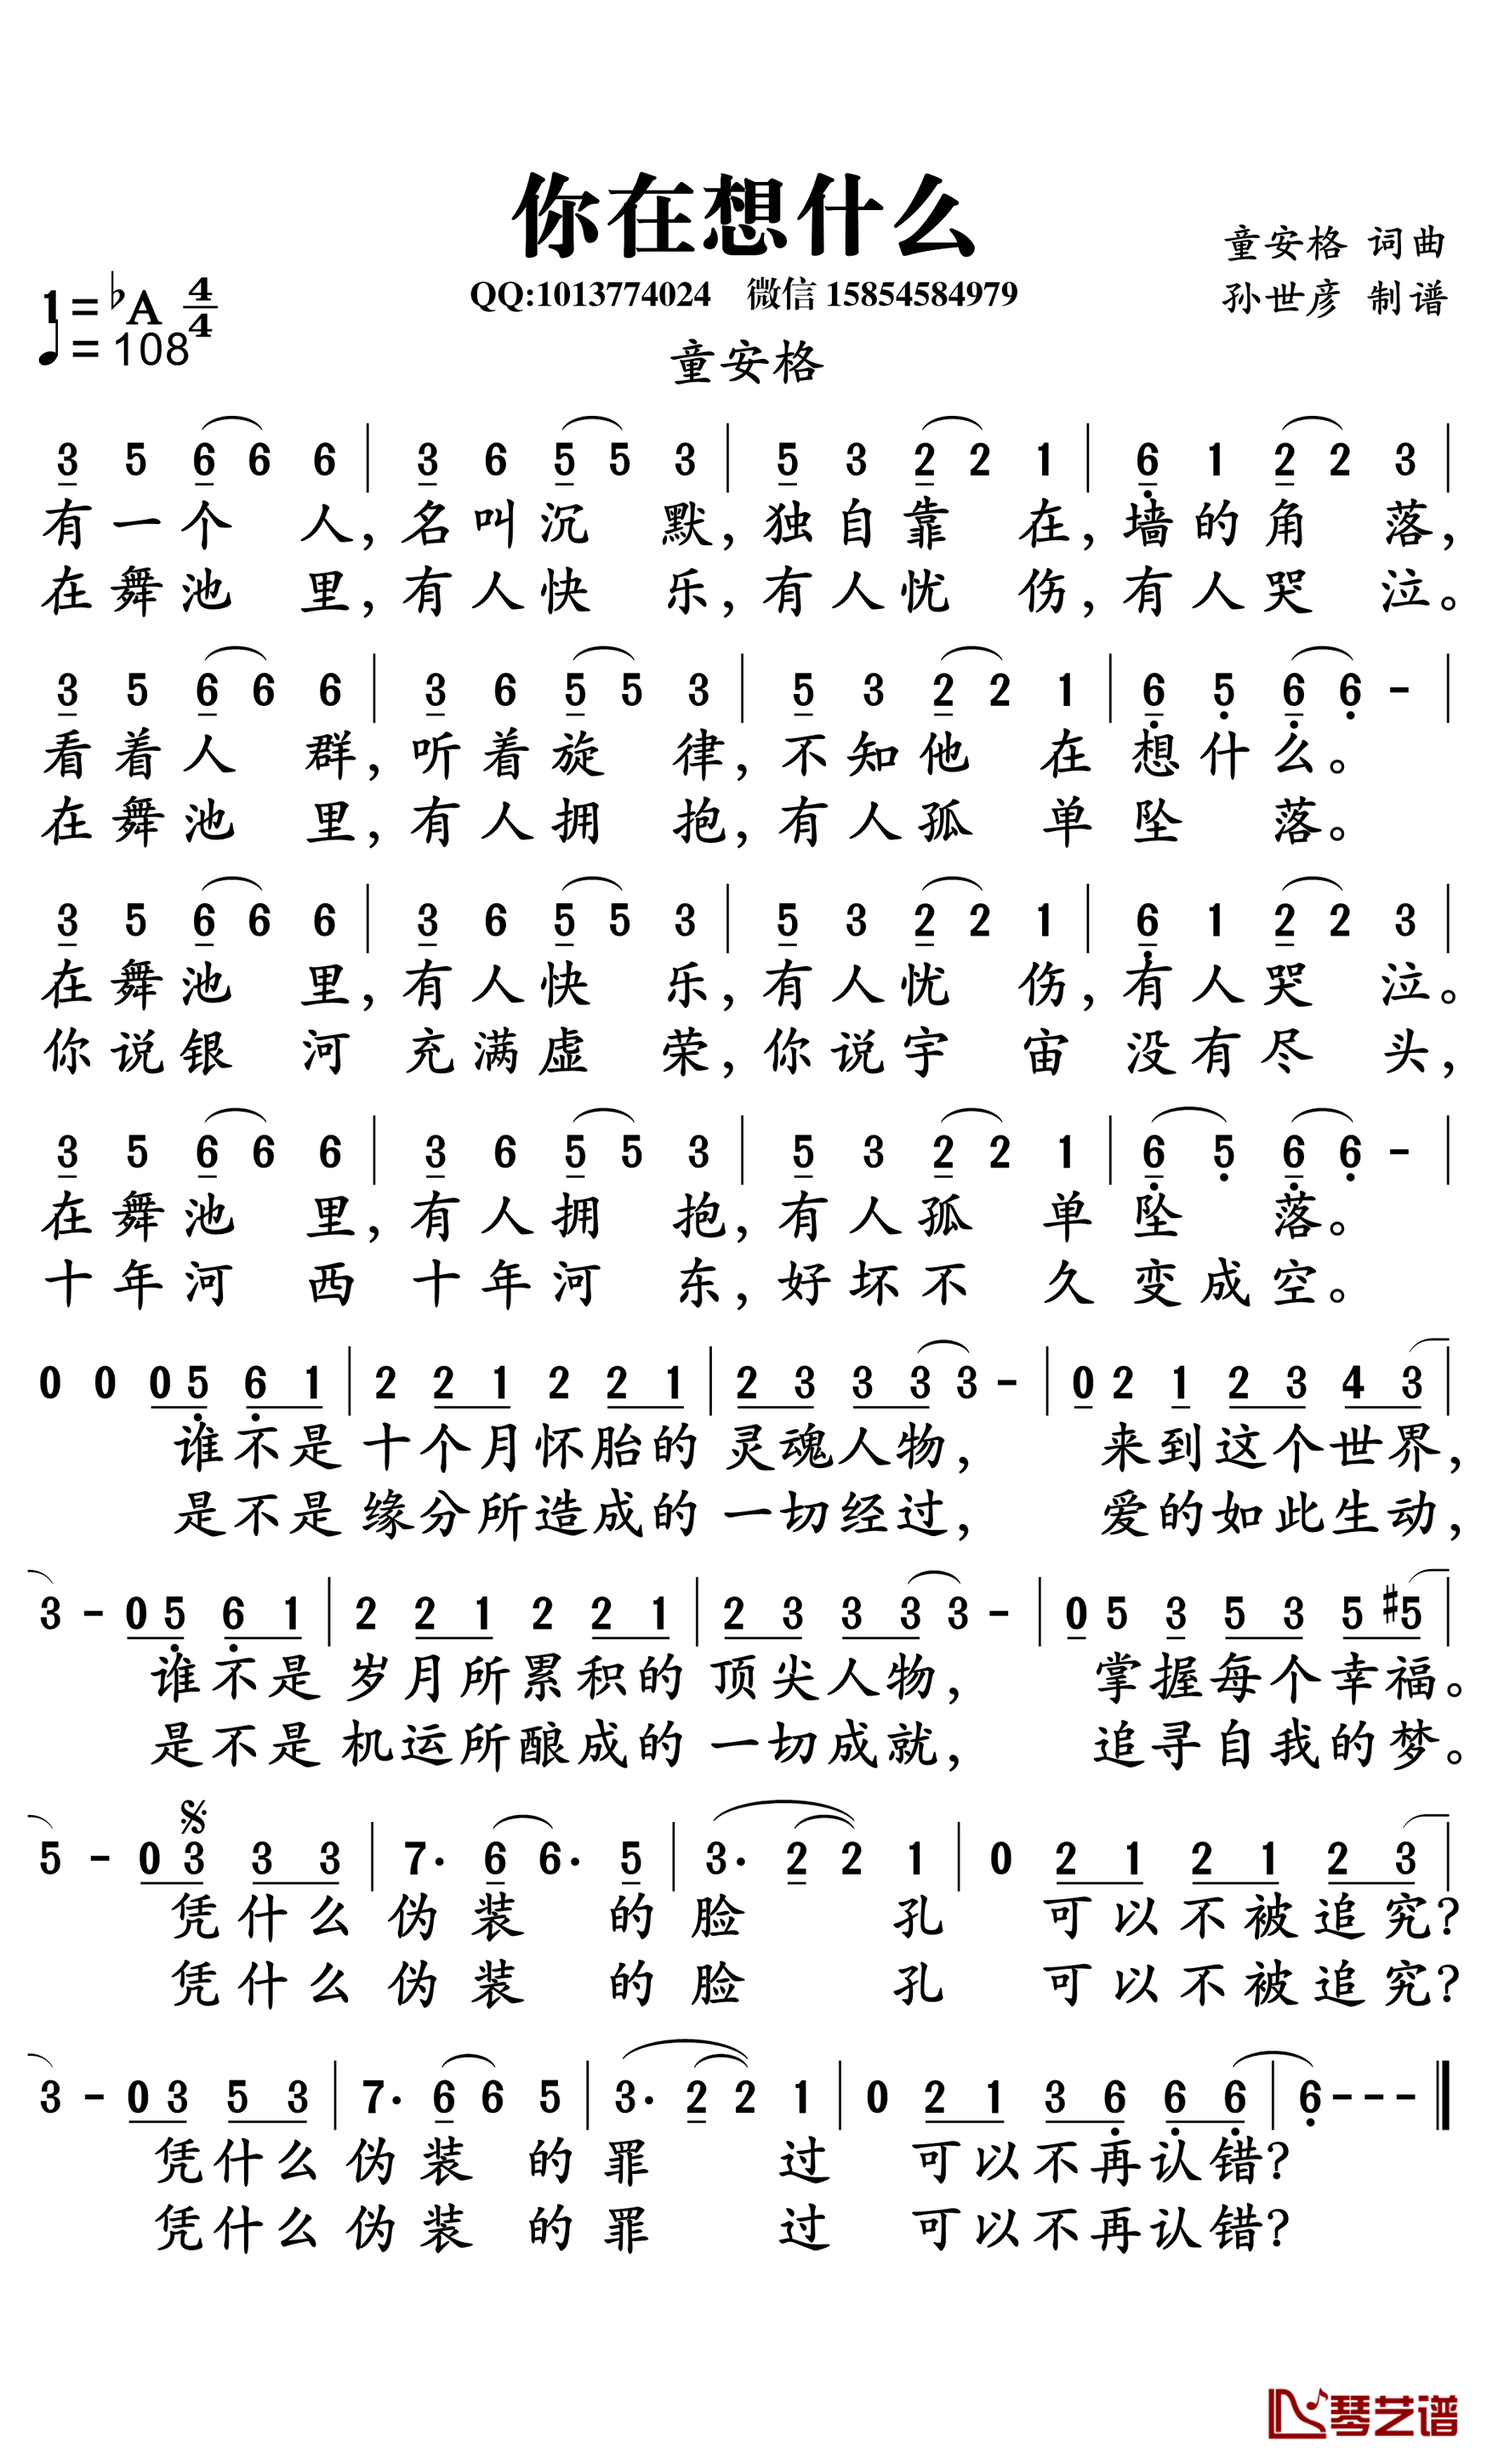 你在想什么
童安格 词曲
1=♭A 4/4
QQ:1013774024 微信 15854584979
孙世彦 制谱
♩=108
童安格
3 5 6 6 6 | 3 6 5 5 3 | 5 3 2 2 1 | 6 1 2 2 3 |
有一个 人,名叫沉 默,独自靠 在,墙的角 落,
在舞池 里,有人快 乐,有人忧 伤,有人哭 泣。
3 5 6 6 6 | 3 6 5 5 3 | 5 3 2 2 1 | 6 5 6 6 - |
看着人 群,听着旋 律,不知他 在想什么。
在舞池 里,有人拥 抱,有人孤 单坠 落。
3 5 6 6 6 | 3 6 5 5 3 | 5 3 2 2 1 | 6 1 2 2 3 |
在舞池 里,有人快 乐,有人忧 伤,有人哭 泣。
你说银 河 充满虚 荣,你说宇 宙 没有尽 头,
3 5 6 6 6 | 3 6 5 5 3 | 5 3 2 2 1 | 6 5 6 6 - |
在舞池 里,有人拥 抱,有人孤 单坠 落。
十年河 西 十年河 东,好坏不 久变成空。
0 0 0 5 6 1 | 2 2 1 2 2 1 | 2 3 3 3 3 - | 0 2 1 2 3 4 3 |
谁不是十个月怀胎的灵魂人物, 来到这个世界,
是不是缘分所造成的一切经过, 爱的如此生动,
3 - 0 5 6 1 | 2 2 1 2 2 1 | 2 3 3 3 3 - | 0 5 3 5 3 5 #5 |
谁不是岁月所累积的顶尖人物, 掌握每个幸福。
是不是机运所酿成的一切成就, 追寻自我的梦。
5 - 0 3 3 3 | 7· 6 6· 5 | 3· 2 2 1 | 0 2 1 2 1 2 3 |
凭什么伪装 的脸 孔 可以不被追究?
凭什么伪装 的脸 孔 可以不被追究?
3 - 0 3 5 3 | 7· 6 6 5 | 3· 2 2 1 | 0 2 1 3 6 6 6 | 6 - - - ‖
凭什么伪装 的罪 过 可以不再认错?
凭什么伪装 的罪 过 可以不再认错?
琴艺谱